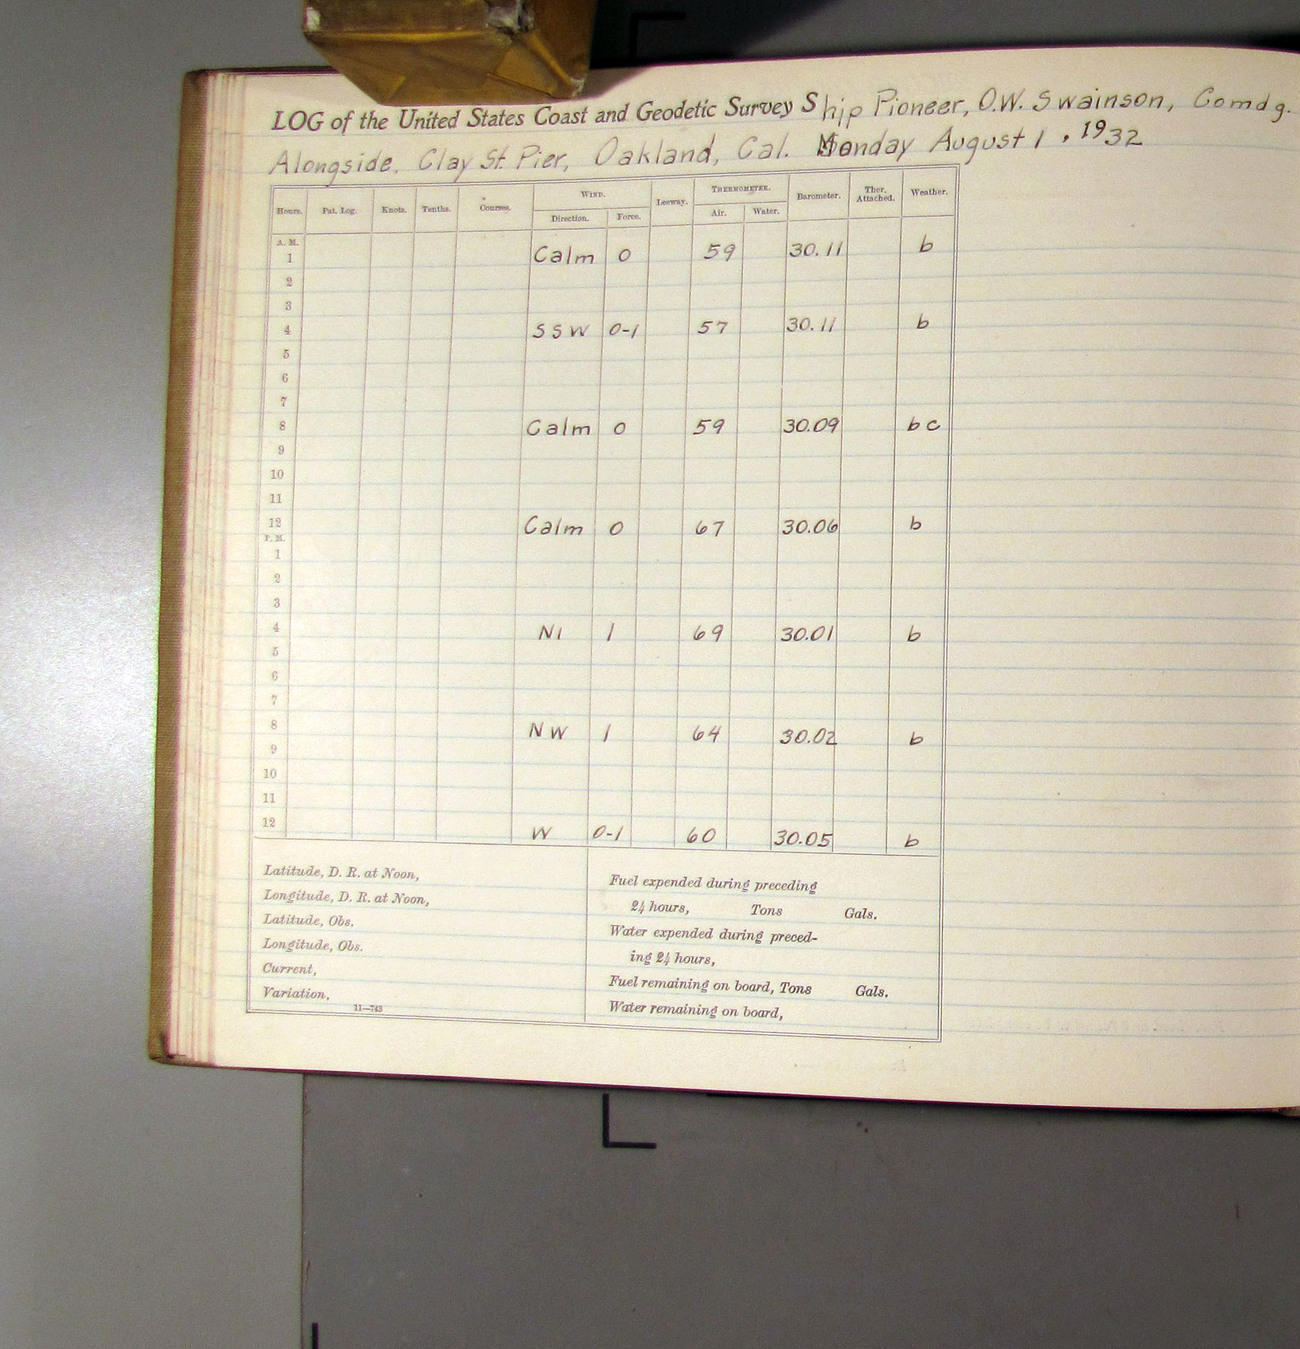 LOG of the United States Coast and Geodetic Survey Ship Pioneer, O.W. Swainson, Comdg.
Alongside, Clay St. Pier, Oakland, Cal. Monday August 1, 1932
Hours. Pat. Log. Knots. Tenths. Courses. WIND. Leeway. THERMOMETER. Barometer. Ther. Attached. Weather.
Direction. Force. Air. Water.
A. M.
1 Calm 0 59 30.11 b
2
3
4 SSW 0-1 57 30.11 b
5
6
7
8 Calm 0 59 30.09 bc
9
10
11
12 Calm 0 67 30.06 b
P. M.
1
2
3
4 1 69 30.01 b
5
6
7
8 NW 1 64 30.02 b
9
10
11
12 W 0-1 60 30.05 b
Latitude, D. R. at Noon,
Longitude, D. R. at Noon,
Latitude, Obs.
Longitude, Obs.
Current,
Variation,
11—743
Fuel expended during preceding
24 hours, Tons Gals.
Water expended during preced-
ing 24 hours,
Fuel remaining on board, Tons Gals.
Water remaining on board,